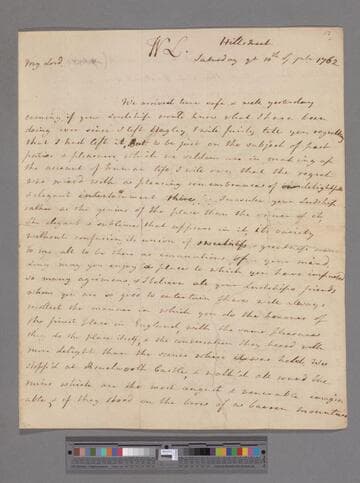 W L.
Hill Street
Saturday ye 10th of July 1762
My Lord
We arrived here safe & well yesterday
evening if your Lordship wou'd know what I have been
doing ever since I left Hagley I will fairly tell you regretting
that I had left it, But to be just on the subject of past
pains & pleasures which we seldom are in making up
the account of human life I will own that the regret
was mixed with ye pleasing remembrances of delightful
& elegant entertainment there. I consider your Lordship
rather as the genius of the place than the owner of it
the elegant & sublime that appears in it, its variety
without confusion, its union of & greatness seem
to me all to be there as emanations of your mind
Long may you enjoy a place to which you have imparted
so many agrémens, & I believe all your Lordships friends
whom you are so good to entertain there will always
recollect the manner in which you do the honours of
the finest place in England, with the same pleasure
they do the place itself, & the conversation they heard with
more delight than the scenes where it was held. We
stopp'd at Kenelworth Castle, & walk'd all round the
ruins which are the most august & venerable imagin-
able, & if they stood on the brow of a barren mountain